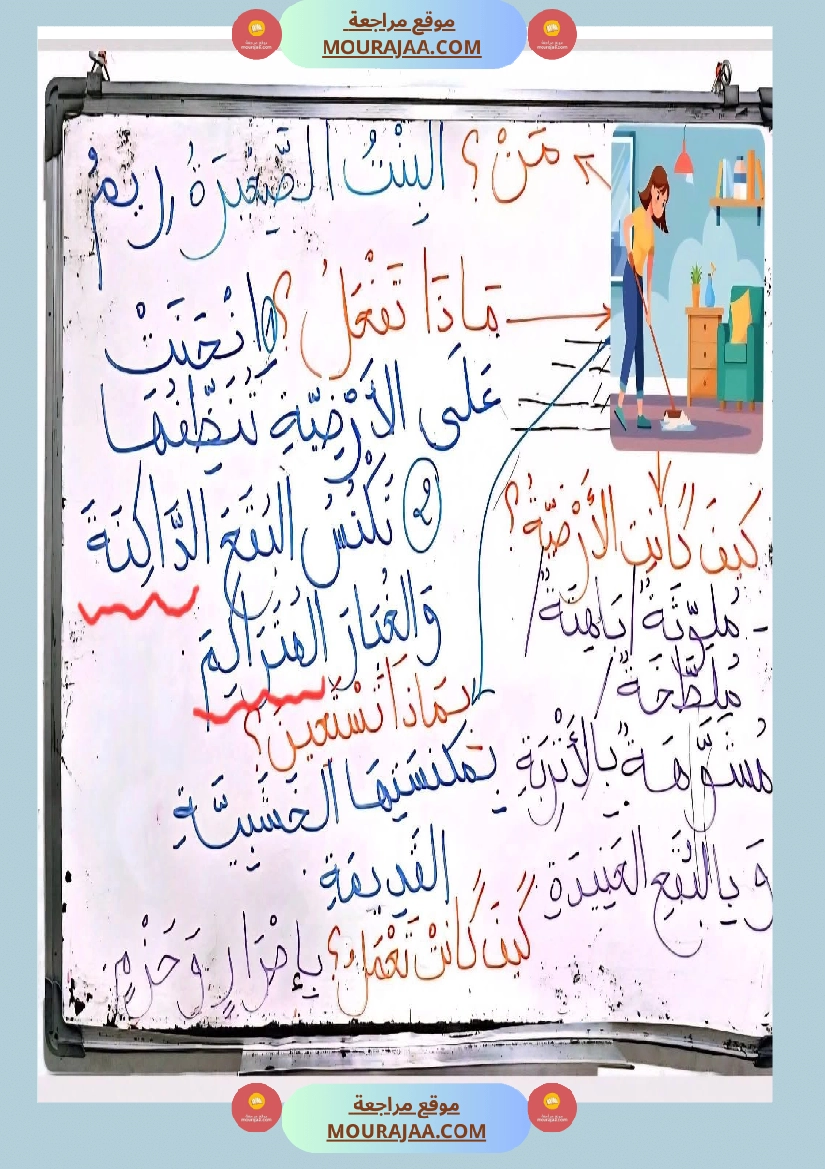 موقع مراجعة
MOURAJAA.COM
مَنْ؟ البِنْتُ الصَّغِيرَةُ رِيمُ
مَاذَا تَفْعَلُ؟ ① اِنْحَنَتْ
عَلَى الأَرْضِيَّةِ تُنَظِّفُهَا
② تَكْنُسُ البُقَعَ الدَّاكِنَةَ
وَالغُبَارَ المُتَرَاكِمَ
بِمَاذَا تَسْتَعِينُ؟
بِمِكْنَسَتِهَا الخَشَبِيَّةِ
القَدِيمَةِ
كَيْفَ كَانَتْ تَعْمَلُ؟ بِإِصْرَارٍ وَحَزْمٍ
كَيْفَ كَانَتِ الأَرْضِيَّةُ؟
- مُلَوَّثَةٌ / بَاهِتَةٌ /
مُلَطَّخَةٌ /
مُشَوَّهَةٌ بِالأَتْرِبَةِ
وَ بِالبُقَعِ العَنِيدَةِ
موقع مراجعة
MOURAJAA.COM